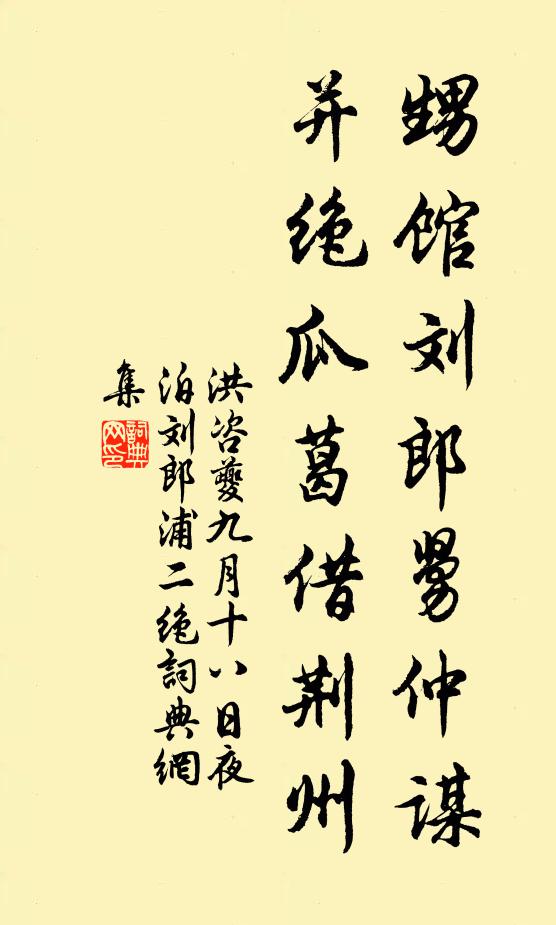 甥馆刘郎舅仲谋
并绝瓜葛借荆州
洪咨夔九月十八日夜
泊刘郎浦二绝詞典網
集
詞典
网印